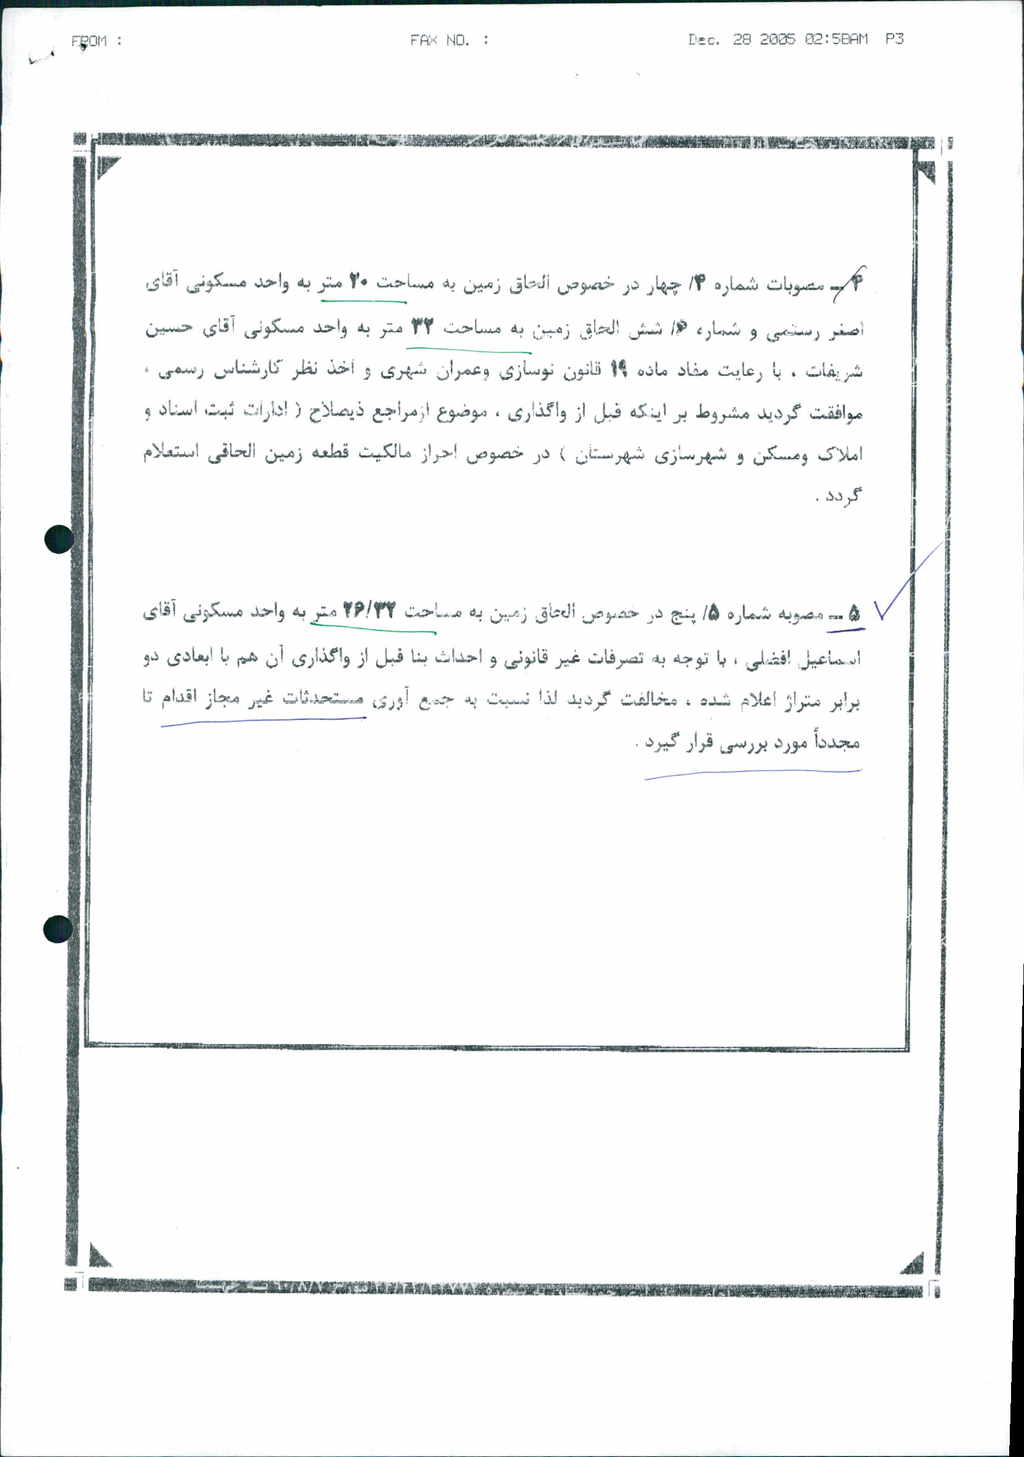 FROM :
FAX NO. :
Dec. 28 2005 02:58AM P3
۴ـ مصوبات شماره ۴/ چهار در خصوص الحاق زمین به مساحت ۲۰ متر به واحد مسکونی آقای
اصغر رستمی و شماره ۶/ شش الحاق زمین به مساحت ۳۲ متر به واحد مسکونی آقای حسین
شریفات ، با رعایت مفاد ماده ۱۹ قانون نوسازی وعمران شهری و اخذ نظر کارشناس رسمی ،
موافقت گردید مشروط بر اینکه قبل از واگذاری ، موضوع ازمراجع ذیصلاح ( ادارات ثبت اسناد و
املاک ومسکن و شهرسازی شهرستان ) در خصوص احراز مالکیت قطعه زمین الحاقی استعلام
گردد .
۵ ـ مصوبه شماره ۵/ پنج در خصوص الحاق زمین به مساحت ۲۶/۳۲ متر به واحد مسکونی آقای
اسماعیل افضلی ، با توجه به تصرفات غیر قانونی و احداث بنا قبل از واگذاری آن هم با ابعادی دو
برابر متراژ اعلام شده ، مخالفت گردید لذا نسبت به جمع آوری مستحدثات غیر مجاز اقدام تا
مجدداً مورد بررسی قرار گیرد .